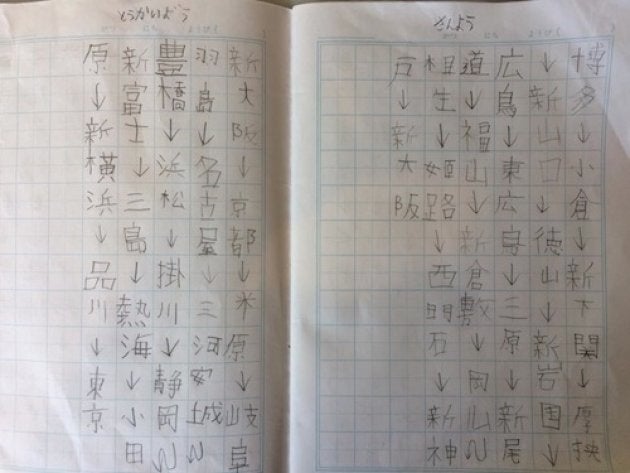 さんよう
博多↓小倉↓新下関↓厚挟
↓新山口↓徳山↓新岩国↓
広島↓東広島↓三原↓新尾
道↓福山↓新倉敷↓岡山
相生↓姫路↓西明石↓新神
戸↓新大阪
とうかいどう
新大阪↓京都↓米原↓岐阜
羽島↓名古屋↓三河安城
豊橋↓浜松↓掛川↓静岡
新富士↓三島↓熱海↓小田
原↓新横浜↓品川↓東京